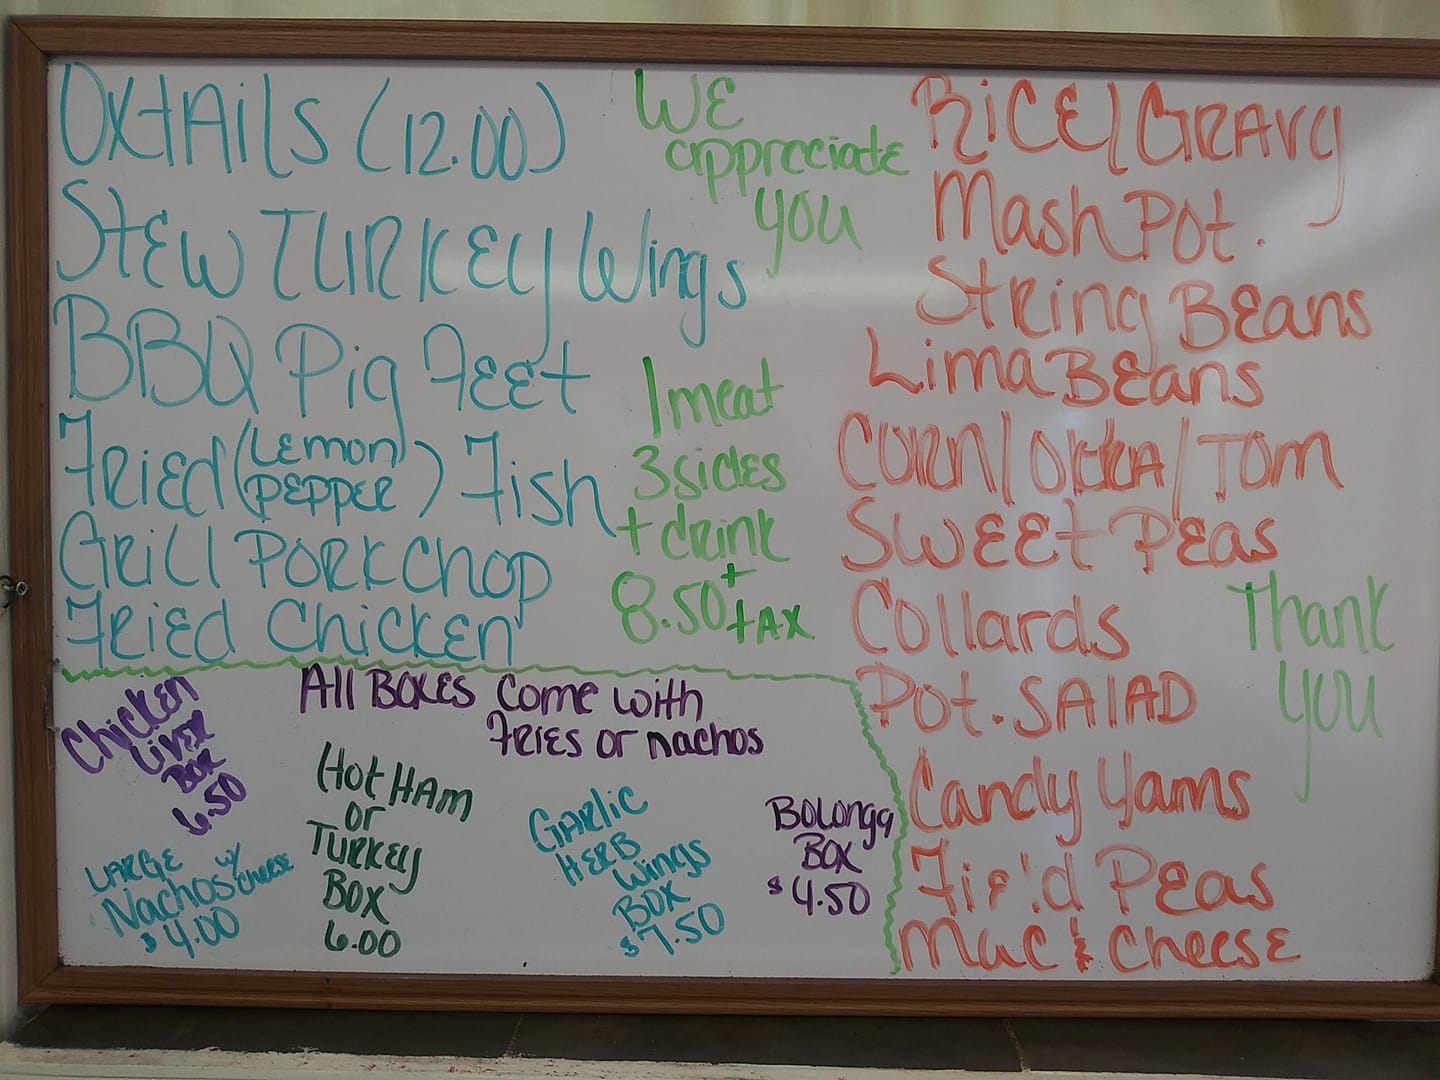 Oxtails (12.00)
Stew Turkey Wings
BBQ Pig Feet
Fried (Lemon Pepper) Fish
Grill Pork Chop
Fried Chicken
We
appreciate
you
1 meat
3 sides
+ drink
8.50 + tax
Rice/Gravy
Mash Pot.
String Beans
Lima Beans
Corn/Okra/Tom
Sweet Peas
Collards
Pot. Salad
Candy Yams
Fie'ld Peas
Mac & Cheese
Thank
you
All Boxes Come with
Fries or nachos
Chicken
Liver
Box
6.50
Large
Nachos w/ Cheese
$4.00
Hot Ham
or
Turkey
Box
6.00
Garlic
Herb
Wings
Box
$7.50
Bolonga
Box
$4.50